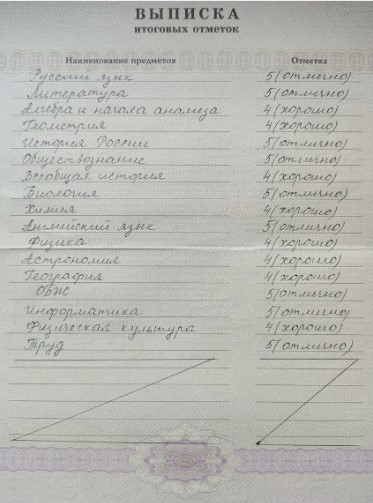 ВЫПИСКА
ИТОГОВЫХ ОТМЕТОК
Наименование предметов Отметка
Русский язык 5(отлично)
Литература 5(отлично)
Алгебра и начала анализа 4(хорошо)
Геометрия 4(хорошо)
История России 5(отлично)
Обществознание 5(отлично)
Всеобщая история 4(хорошо)
Биология 5(отлично)
Химия 4(хорошо)
Английский язык 5(отлично)
Физика 4(хорошо)
Астрономия 4(хорошо)
География 4(хорошо)
ОБЖ 5(отлично)
Информатика 5(отлично)
Физическая культура 4(хорошо)
Труд 5(отлично)